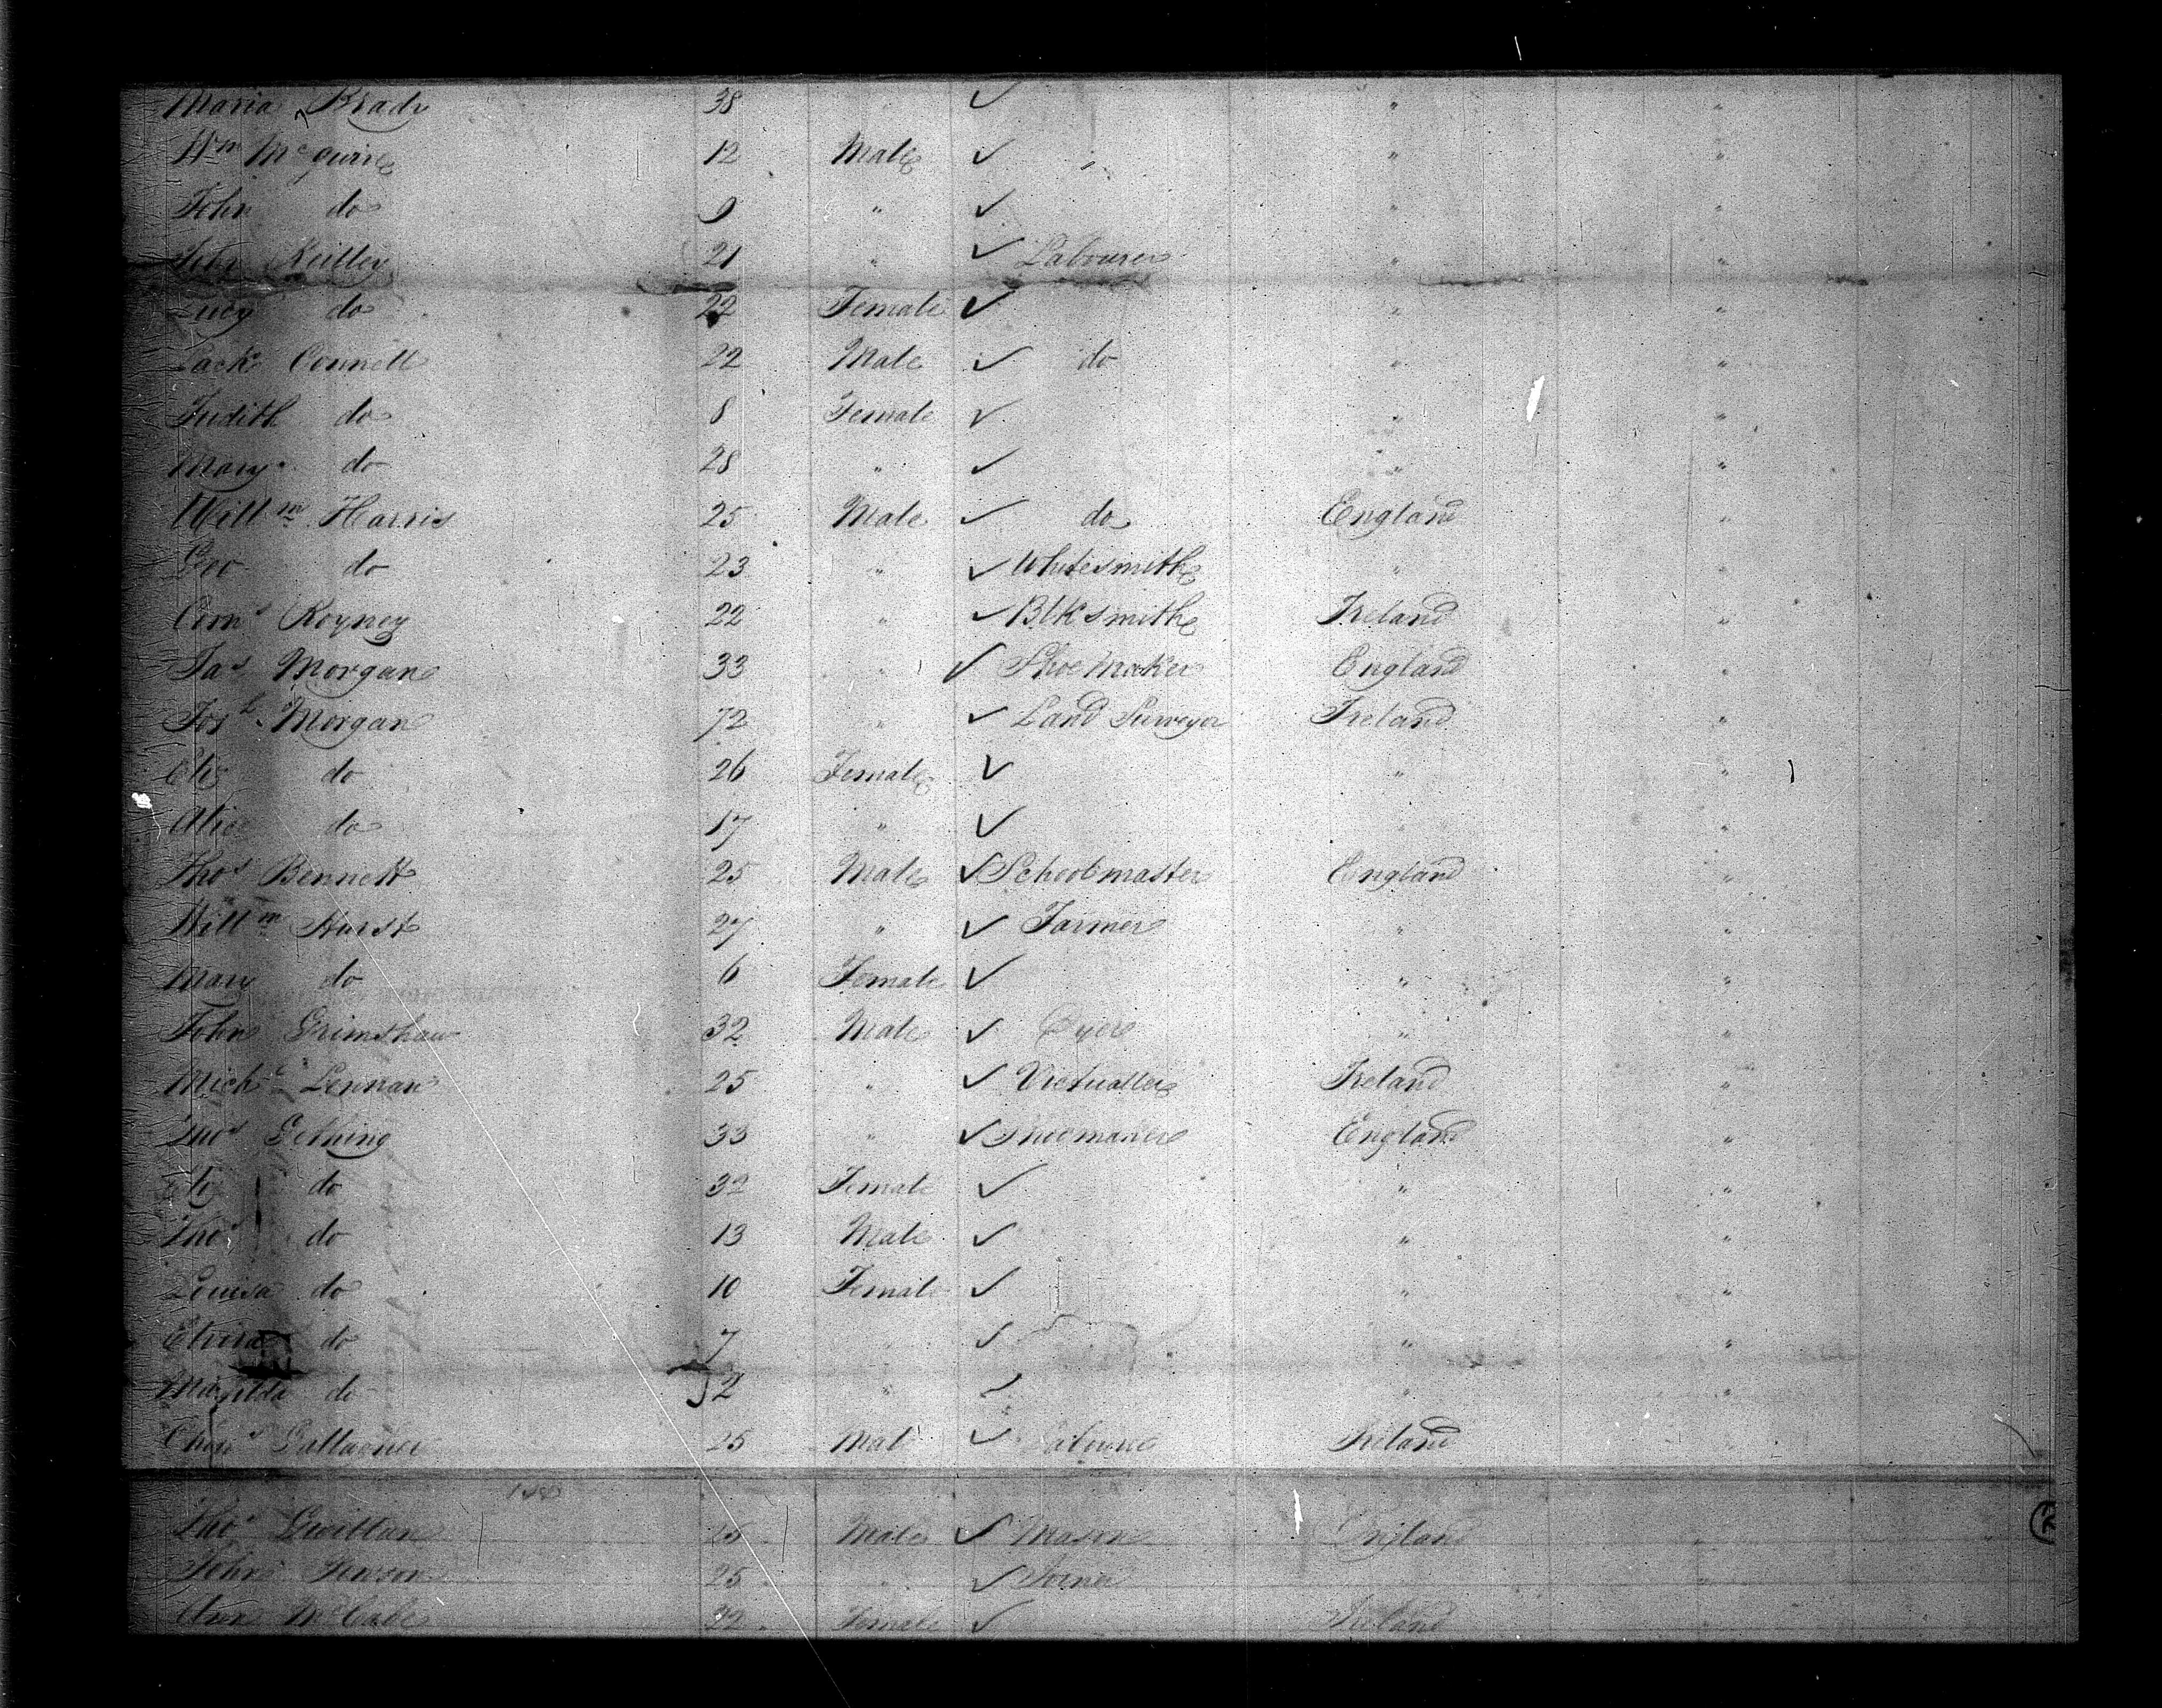 Maria Brady 38 " ✓ " "
Wm McGuire 12 Male ✓ " " "
John do 9 " ✓ " "
John Reilley 21 " ✓ Labourer " "
Lucy do 22 Female ✓ " "
Jack Connell 22 Male ✓ do " "
Judith do 8 Female ✓ " "
Mary do 28 " ✓ " "
Willm Harris 25 Male ✓ do England "
Geo do 23 " ✓ Whitesmith " "
Corns Royney 22 " ✓ Blksmith Ireland "
Jas Morgan 33 " ✓ Shoe Maker England "
Josh Morgan 72 " ✓ Land Surveyor Ireland "
Eliz do 26 Female ✓ " "
Alice do 17 " ✓ " "
Thos Bennett 25 Male ✓ Schoolmaster England "
Willm Hurst 27 " ✓ Farmer " "
Mary do 6 Female ✓ " "
John Grimshaw 32 Male ✓ Dyer " "
Michl Lennan 25 " ✓ Victualler Ireland "
Thos Gething 33 " ✓ Shoemaker England "
Eliz do 32 Female ✓ " "
Thos do 13 Male ✓ " "
Louisa do 10 Female ✓ " "
do 7 " ✓ " "
Matilda do 2 " ✓ " "
Gallagher 25 Male ✓ Labourer Ireland "
Thos 25 Male ✓ Mason England "
John 25 " ✓ Joiner "
Ann McCabe 22 Female ✓ Ireland